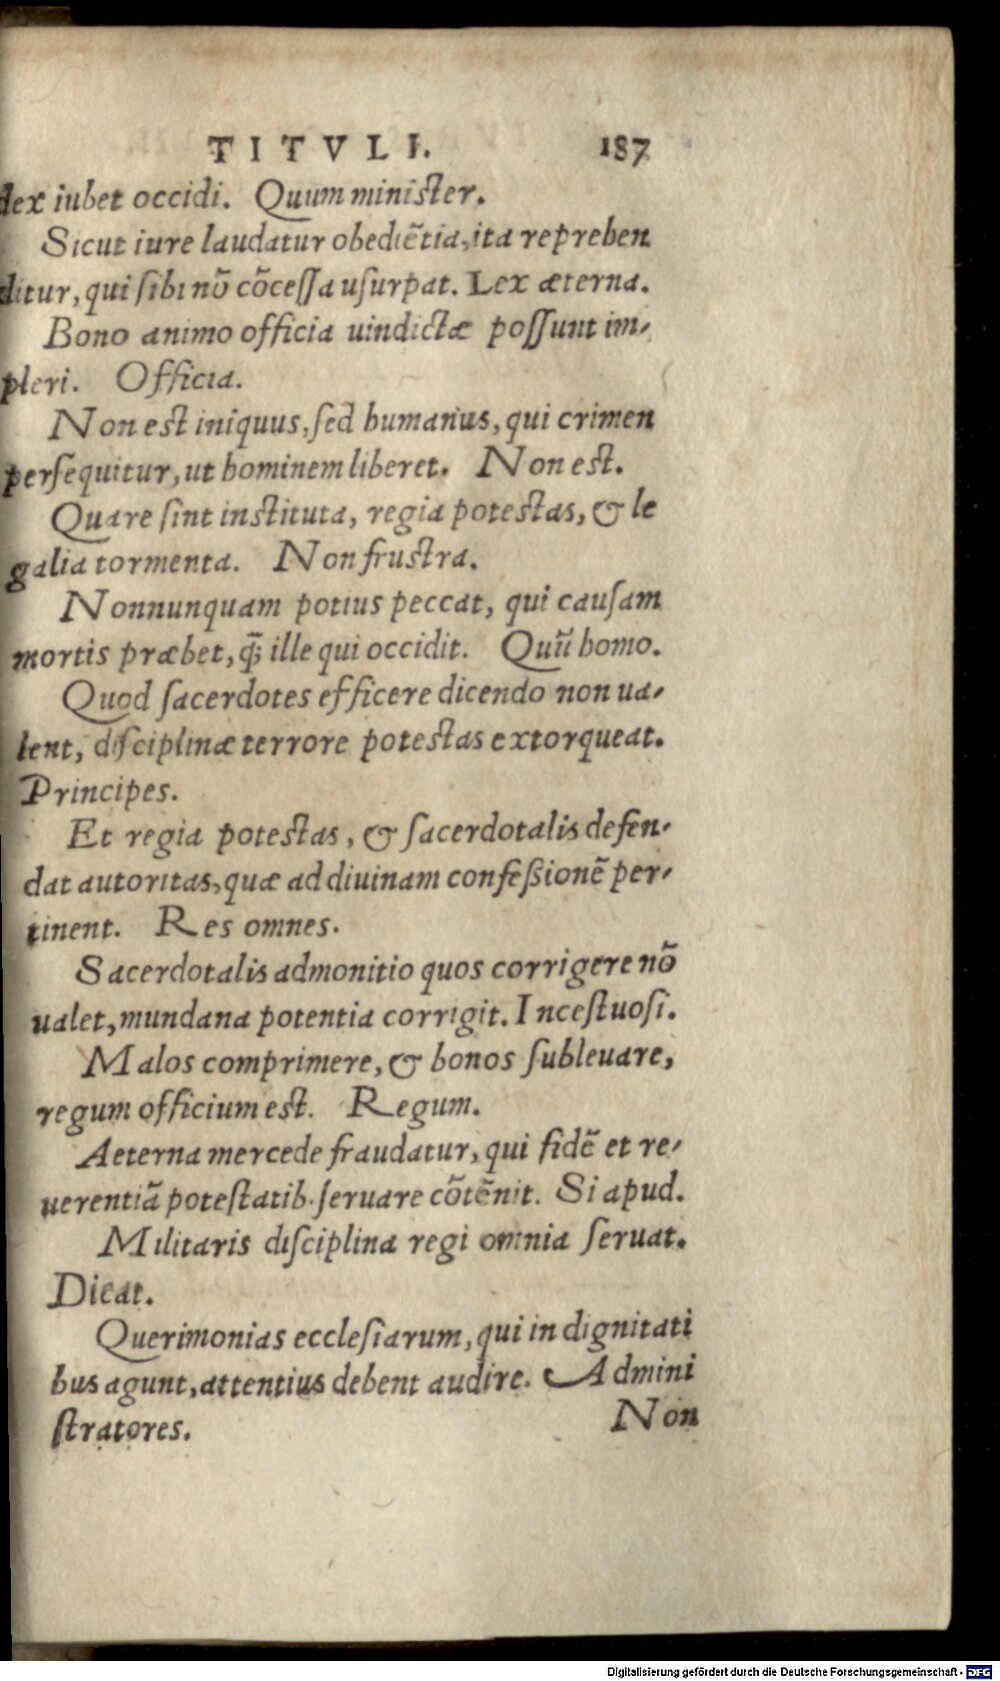 TITVLI. 187
dex iubet occidi. Quum minister.
Sicut iure laudatur obediẽtia, ita reprehen
ditur, qui sibi nõ cõcessa usurpat. Lex æterna.
Bono animo officia uindictæ possunt im-
pleri. Officia.
Non est iniquus, sed humanus, qui crimen
persequitur, ut hominem liberet. Non est.
Quare sint instituta, regia potestas, & le
galia tormenta. Non frustra.
Nonnunquam potius peccat, qui causam
mortis præbet, q̃; ille qui occidit. Quũ homo.
Quod sacerdotes efficere dicendo non ua-
lent, disciplinæ terrore potestas extorqueat.
Principes.
Et regia potestas, & sacerdotalis defen-
dat autoritas, quæ ad diuinam confeßionẽ per-
tinent. Res omnes.
Sacerdotalis admonitio quos corrigere nõ
ualet, mundana potentia corrigit. Incestuosi.
Malos comprimere, & bonos subleuare,
regum officium est. Regum.
Aeterna mercede fraudatur, qui fidẽ et re-
uerentiã potestatib. seruare cõtẽnit. Si apud.
Militaris disciplina regi omnia seruat.
Dicat.
Querimonias ecclesiarum, qui in dignitati
bus agunt, attentius debent audire. Admini
stratores. Non
Digitalisierung gefördert durch die Deutsche Forschungsgemeinschaft - DFG